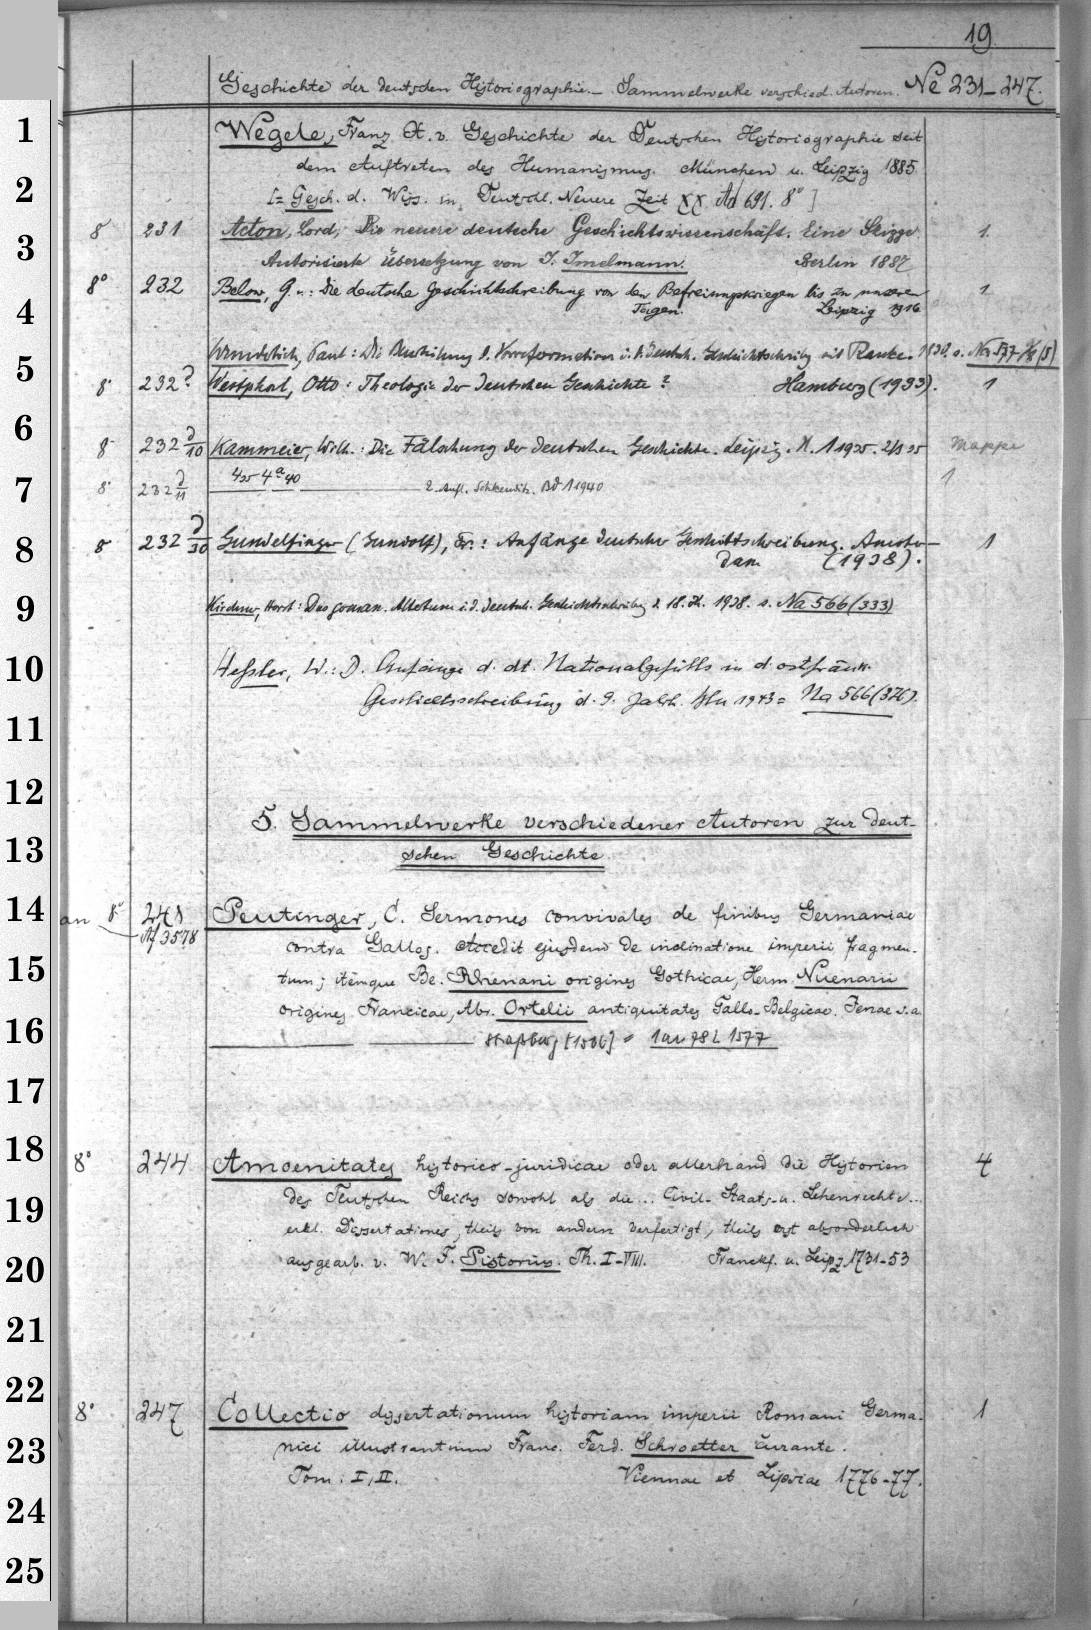 19.
Geschichte der deutschen Historiographie. – Sammelwerke verschied. Autoren. Ne 231–247.
1
Wegele, Franz X. v. Geschichte der Deutschen Historiographie seit
dem Auftreten des Humanismus. München u. Leipzig 1885
2
[= Gesch. d. Wiss. in Deutschl. Neuere Zeit XX Ad 691. 8°]
8° 231 Acton, Lord, Die neuere deutsche Geschichtswissenschaft. Eine Skizze. 1.
3
Autorisierte Übersetzung von J. Imelmann. Berlin 1887
8° 232 Below, G. v.: Die deutsche Geschichtschreibung von den Befreiungskriegen bis zu unseren 1
4
Tagen. Leipzig 1916
Paul: Die Beurteilung d. Vorreformation i. d. deutsch. Geschichtschreibg seit Ranke. 1930. s.
5
8° 232 Westphal, Otto: Theologie der deutschen Geschichte? Hamburg (1933). 1
6
8° 232 d/10 Kammeier, Wilh.: Die Fälschung der deutschen Geschichte. Leipzig. H. 1 1935. 2/3 35 Mappe
7
8° 232 d/11 2. Aufl. Schkeuditz. Bd 1 1940 1
8
8° 232 d/30 Gundelfinger (Gundolf), Fr.: Anfänge deutscher Geschichtschreibung. Amster- 1
dam (1938).
9
Kirchner, Horst: Das german. Altertum i. d. deutsch. Geschichtschreibg d. 18. Jh. 1938. s. Na 566 (333)
10
Hessler, W.: D. Anfänge d. dt. Nationalgefühls in d. ostfränk.
Geschichtsschreibung d. 9. Jahrh. Bln 1943 = Na 566 (376).
11
12
5. Sammelwerke verschiedener Autoren zur deut-
13
schen Geschichte.
14
an 8° 241 Peutinger, C. Sermones convivales de finibus Germaniae
Af 3578
contra Gallos. Accedit ejusdem de inclinatione imperii fragmen-
15
tum; itemque Be. Rhenani origines Gothicae, Herm. Nuenarii
origines Francicae, Abr. Ortelii antiquitates Gallo-Belgicae. Jenae s. a.
16
Straßburg [1506] =
17
18
8° 244 Amoenitates historico-juridicae oder allerhand die Historien 4
des Teutschen Reichs sowohl als die... Civil- Staats- u. Lehenrechte...
19
erkl. Dissertationes, theils von andern verfertigt, theils erst absonderlich
20
ausgearb. v. W. F. Pistorius. Th. I–VIII. Franckf. u. Leipz. 1731–53
21
22
8° 247 Collectio dissertationum historiam imperii Romani Germa- 1
23
nici illustrantium Franc. Ferd. Schroetter curante.
Tom. I, II. Viennae et Lipsiae 1776–77.
24
25